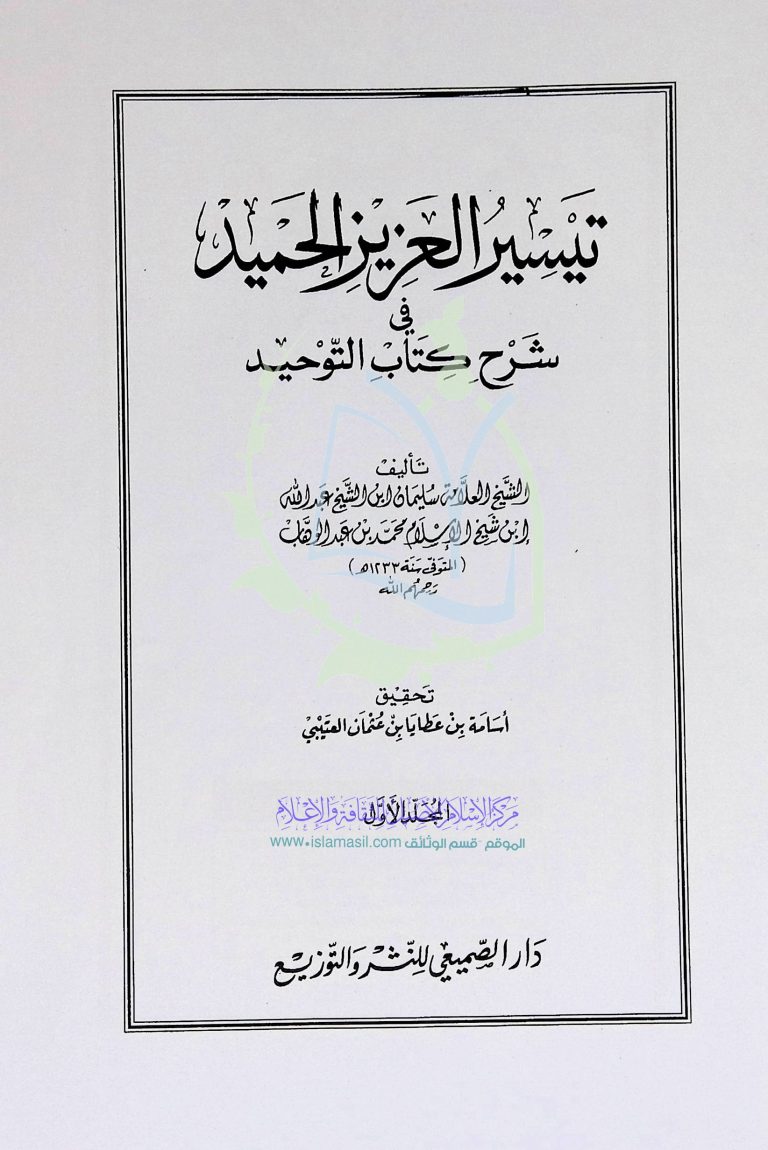 تَيْسِيرُ العَزِيزِ الحَمِيدْ
في
شَرْحِ كِتَابِ التَّوْحِيد
تَأليفْ
الشَّيْخ العلَّامة سُليمان ابن الشَّيْخ عَبد الله
ابْن شَيْخ الإِسْلَام محمَّد بْن عَبد الوهَّاب
(المتوفى سَنَة ١٢٣٣ه)
رَحِمَهُم الله
تَحَقِيْق
أسَامَة بِنْ عَطَايَا بِنْ عُثْمَان العتَيْبِيْ
المُجَلَّد الأَوَّل
مركز الإسلام الأصيل للثقافة والإعلام
الموقع -قسم الوثائق www.islamasil.com
دَار الصّميعي للنّشْر وَالتّوزيْع